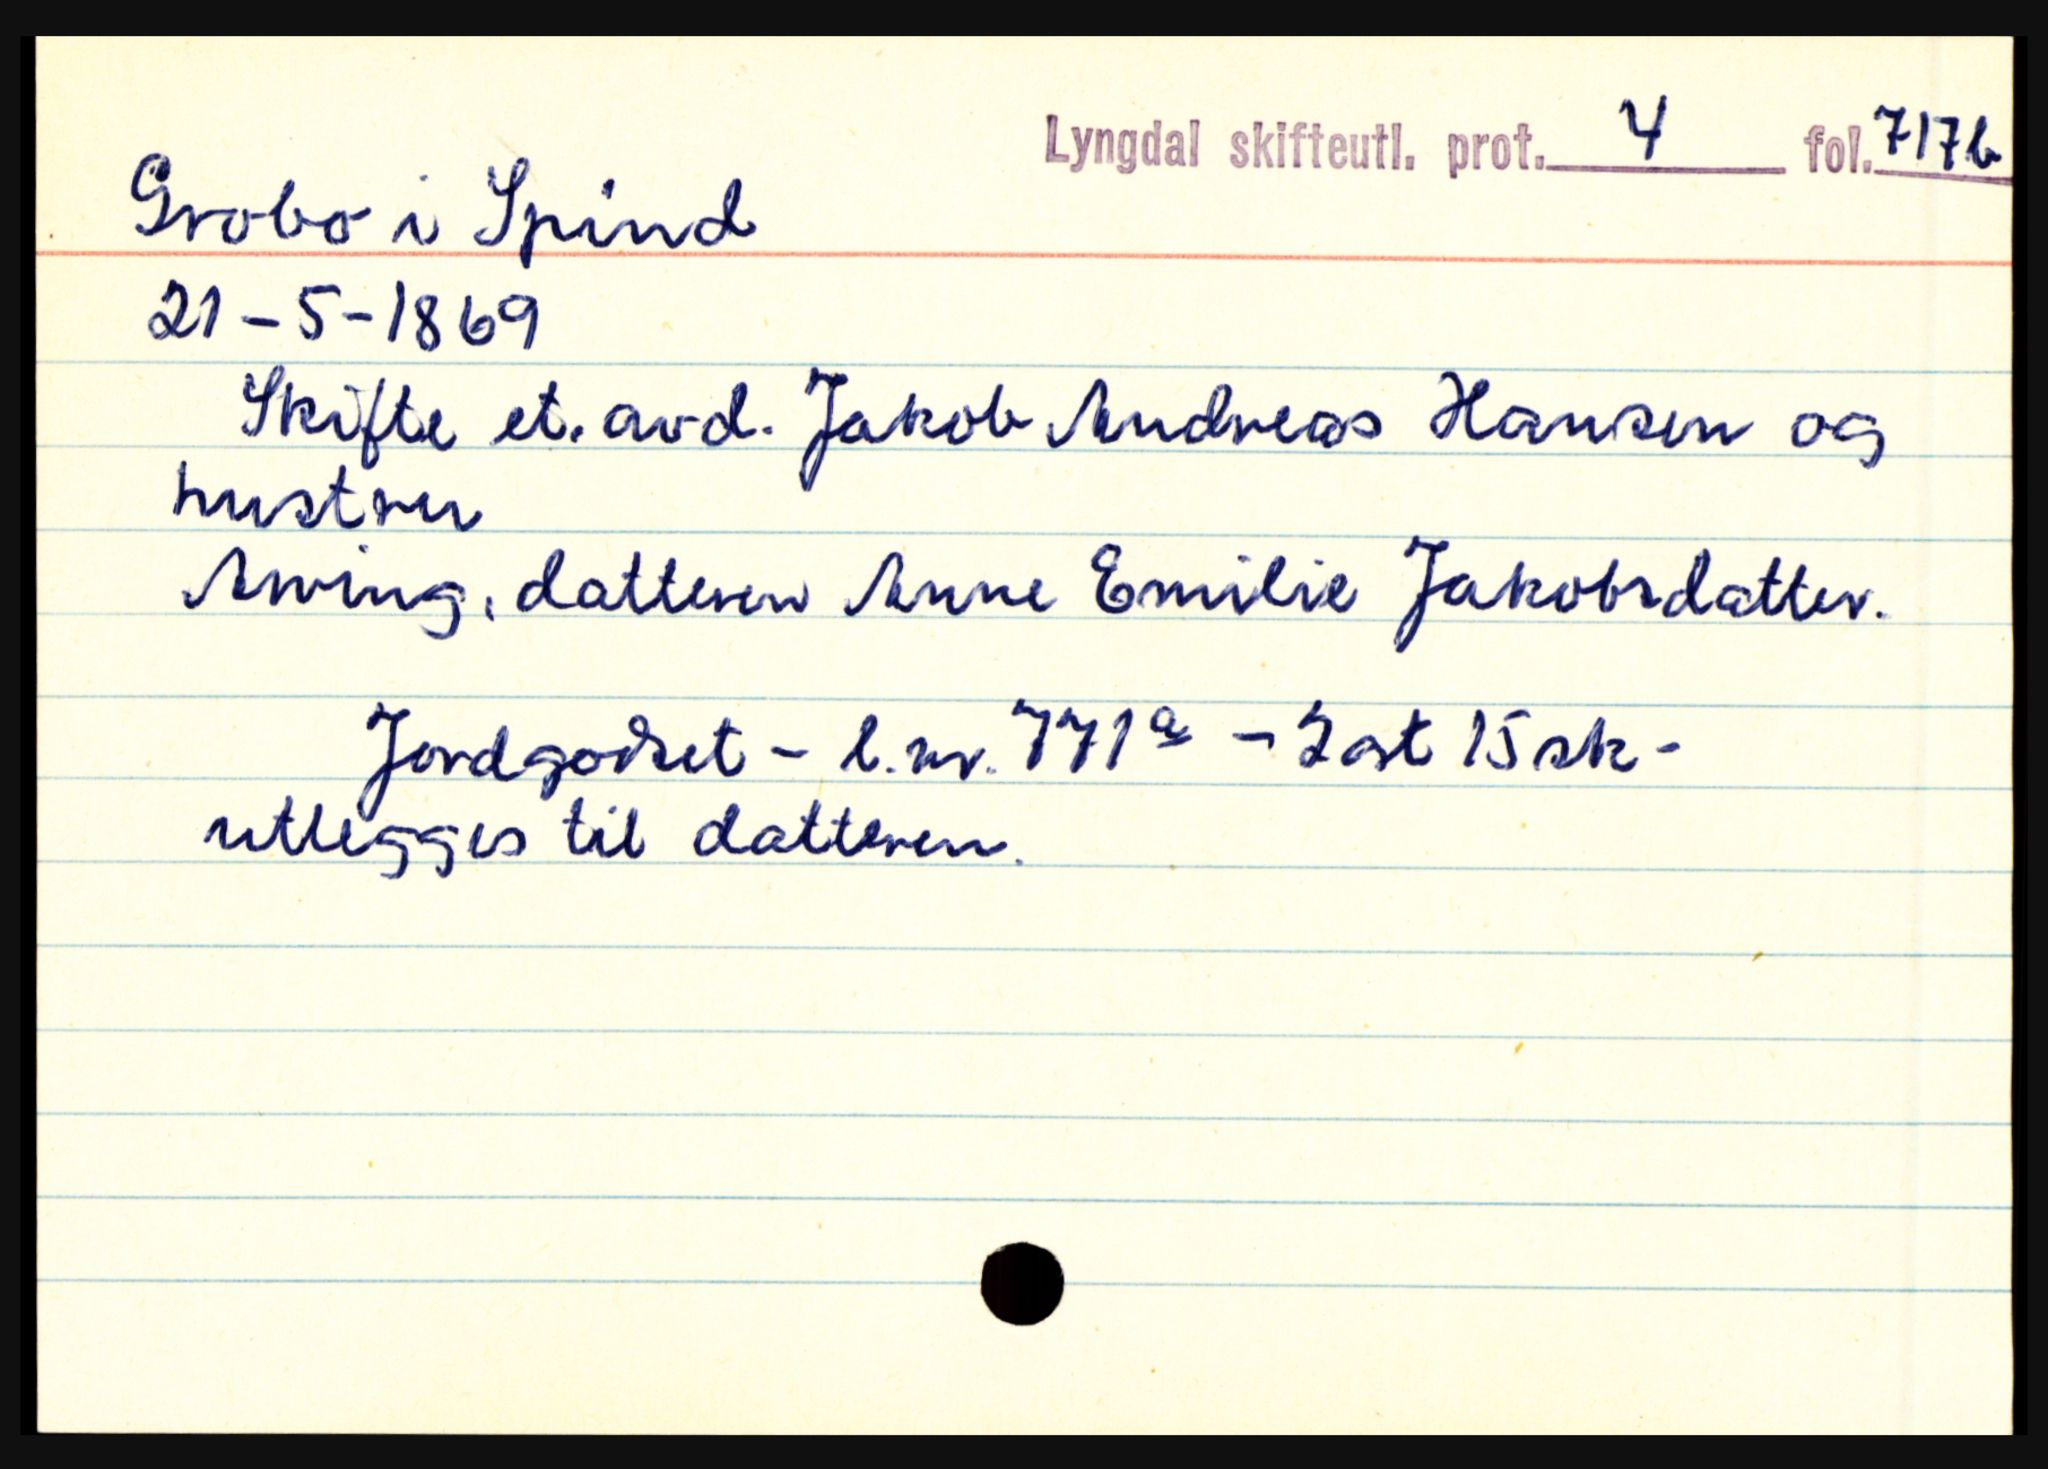 Lyngdal skifteutl. prot. 4 fol. 717b
Grobo i Spind
21-5-1869
Skifte et. avd. Jakob Andreas Hansen og
hustru
Arving, datteren Anne Emilie Jakobsdatter.
Jordgodset - l.nr. 771a - 2 ort 15 sk -
utlegges til datteren.